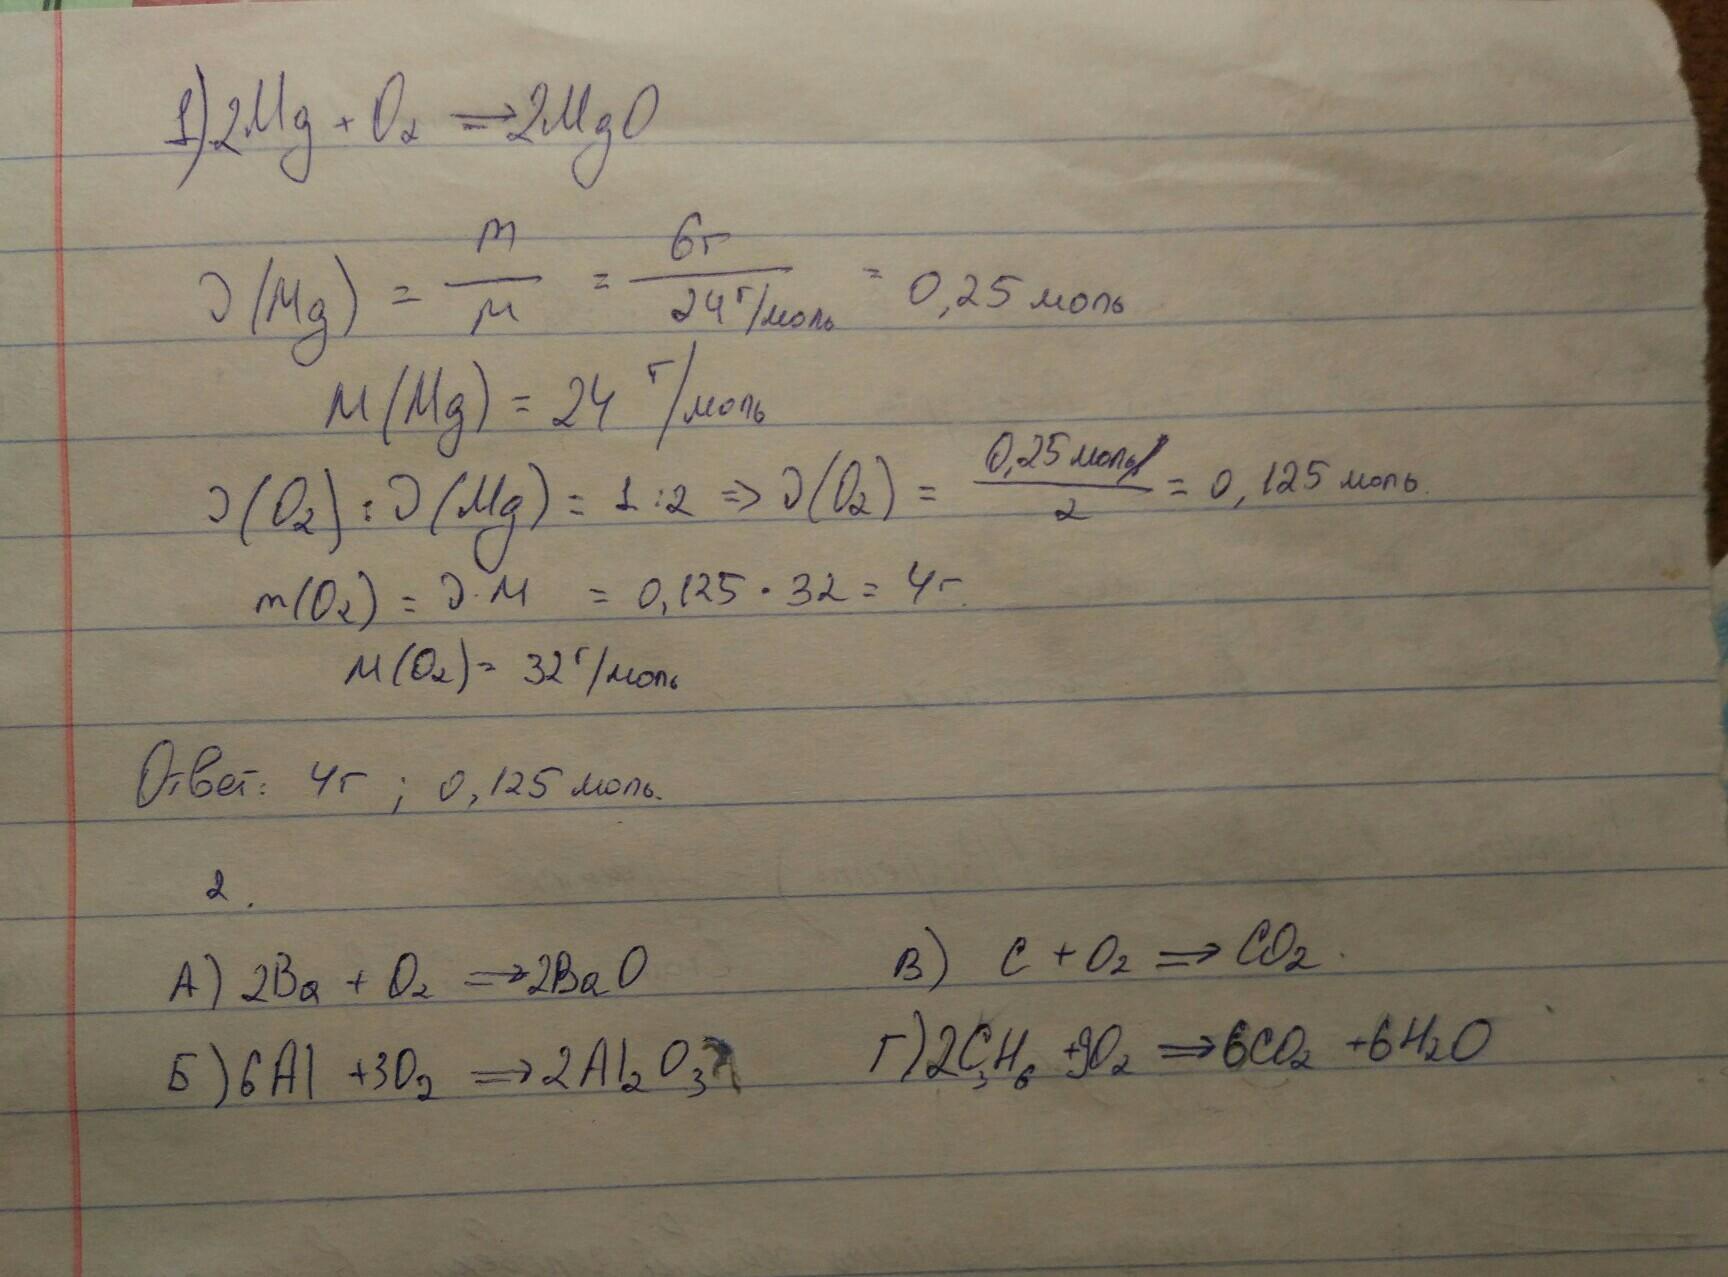 1) 2Mg + O₂ => 2MgO
ν(Mg) = m/M = 6г/24 г/моль = 0,25 моль
M(Mg) = 24 г/моль
ν(O₂) : ν(Mg) = 1:2 => ν(O₂) = 0,25 моль/2 = 0,125 моль.
m(O₂) = ν·M = 0,125 · 32 = 4г.
M(O₂) = 32 г/моль
Ответ: 4г ; 0,125 моль.
2.
А) 2Ba + O₂ => 2BaO
В) C + O₂ => CO₂.
Б) 6Al + 3O₂ => 2Al₂O₃
Г) 2C₃H₆ + 9O₂ => 6CO₂ + 6H₂O